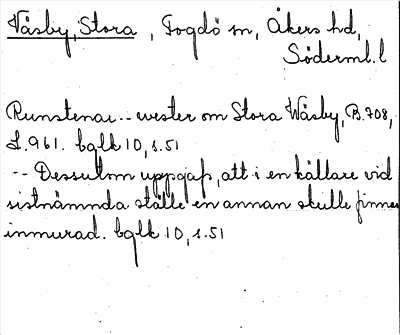 Väsby, Stora, Fogdö sn, Åkers hd,
Söderml. l
Runstenar -- wester om Stora Wäsby, B. 708,
L. 961. bglk 10, s. 51
-- Dessutom uppgafs, att i en källare vid
sistnämnda ställe en annan skulle finnas
inmurad. bglk 10, s. 51